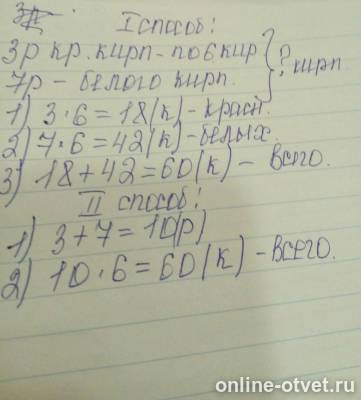 I способ:
3р кр. кирп - по 6 кир
7р - белого кирп. } ? кирп
1) 3·6=18(к) - красн.
2) 7·6=42(к) - белых.
3) 18+42=60(к) - всего.
II способ:
1) 3+7=10(р)
2) 10·6=60(к) - всего.
online-otvet.ru